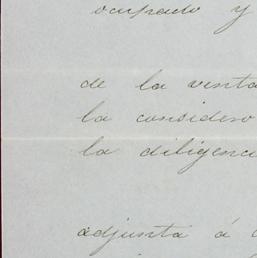 ocupado y
de la venta
la considero
la diligenci
adjunta á